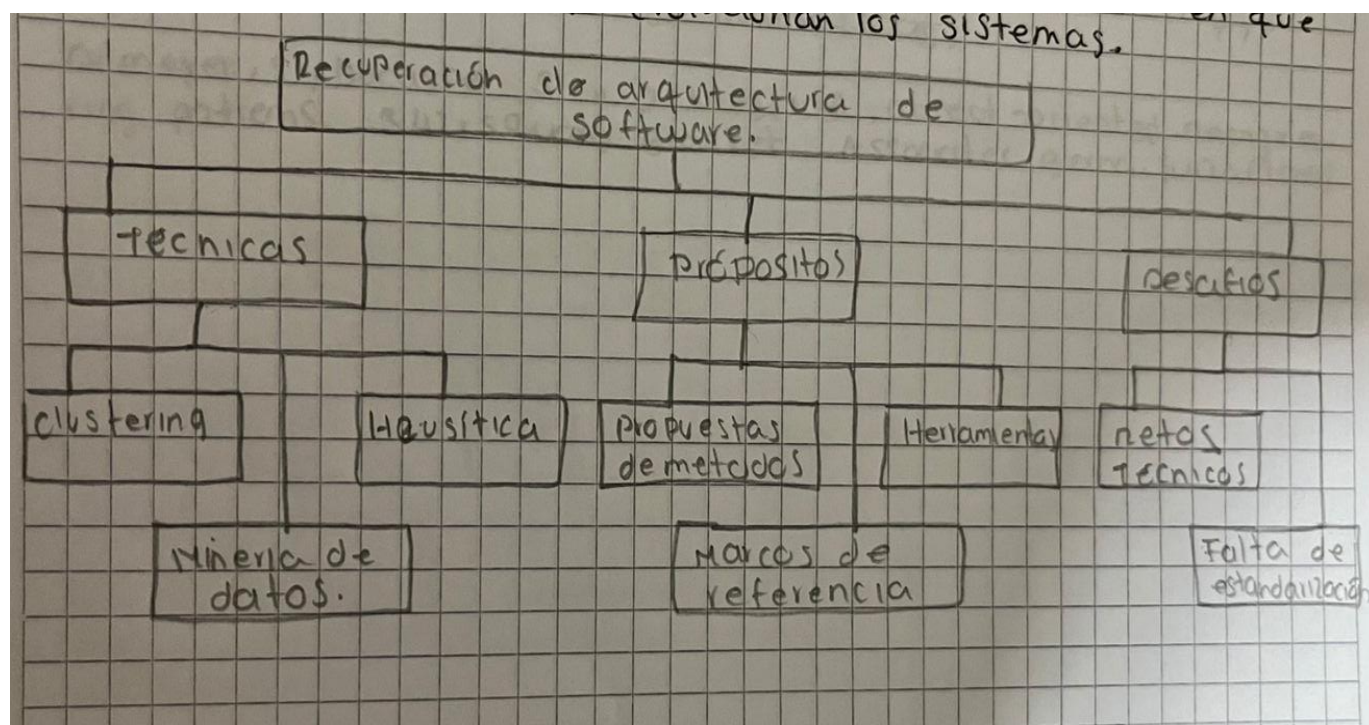 los sistemas. en que
Recuperación de arquitectura de
software.
Técnicas
própositos
Desafios
Clustering
Heusítica
propuestas
de metodos
Herramientas
Retos
Técnicos
Minería de
datos.
Marcos de
referencia
Falta de
estandarización